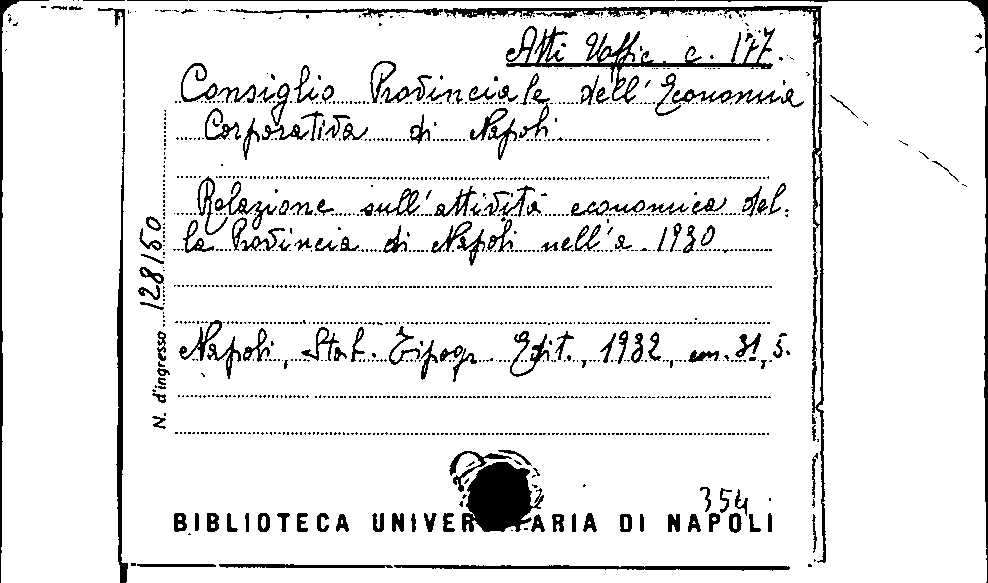 Atti Uffic. c. 177.
Consiglio Provinciale dell'Economia
Corporativa di Napoli.
Relazione sull'attività economica del-
la Provincia di Napoli nell'a. 1930
Napoli, Stab. Tipogr. Edit., 1932, cm. 31,5.
N. d'ingresso 128150
354
BIBLIOTECA UNIVER TARIA DI NAPOLI